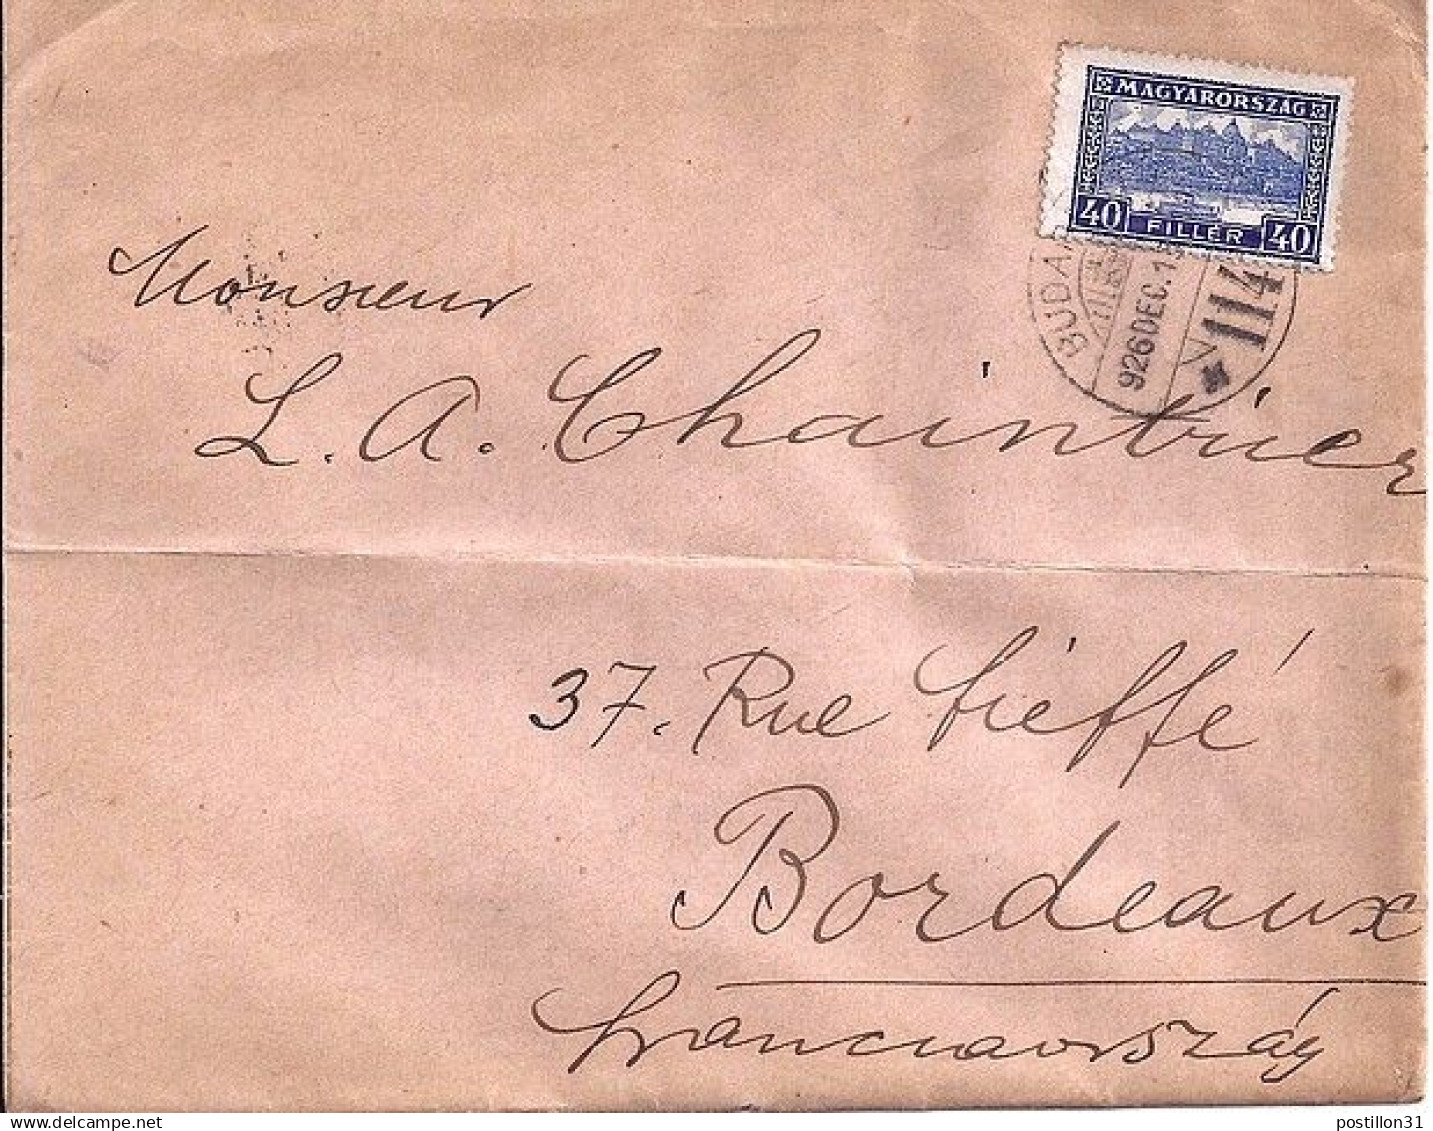 MAGYARORSZÁG
40 FILLÉR 40
BUDA
926 DEC. 1
114
Monsieur
L. A. Chaintrier
37. Rue Fieffé
Bordeaux
Franciaország
postillon31